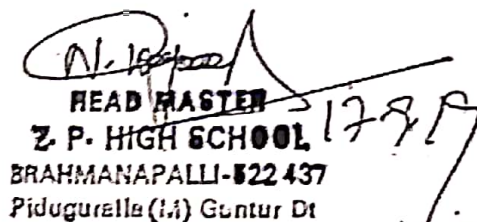 HEAD MASTER
Z. P. HIGH SCHOOL
BRAHMANAPALLI-522 437
Piduguralla (M) Guntur Dt